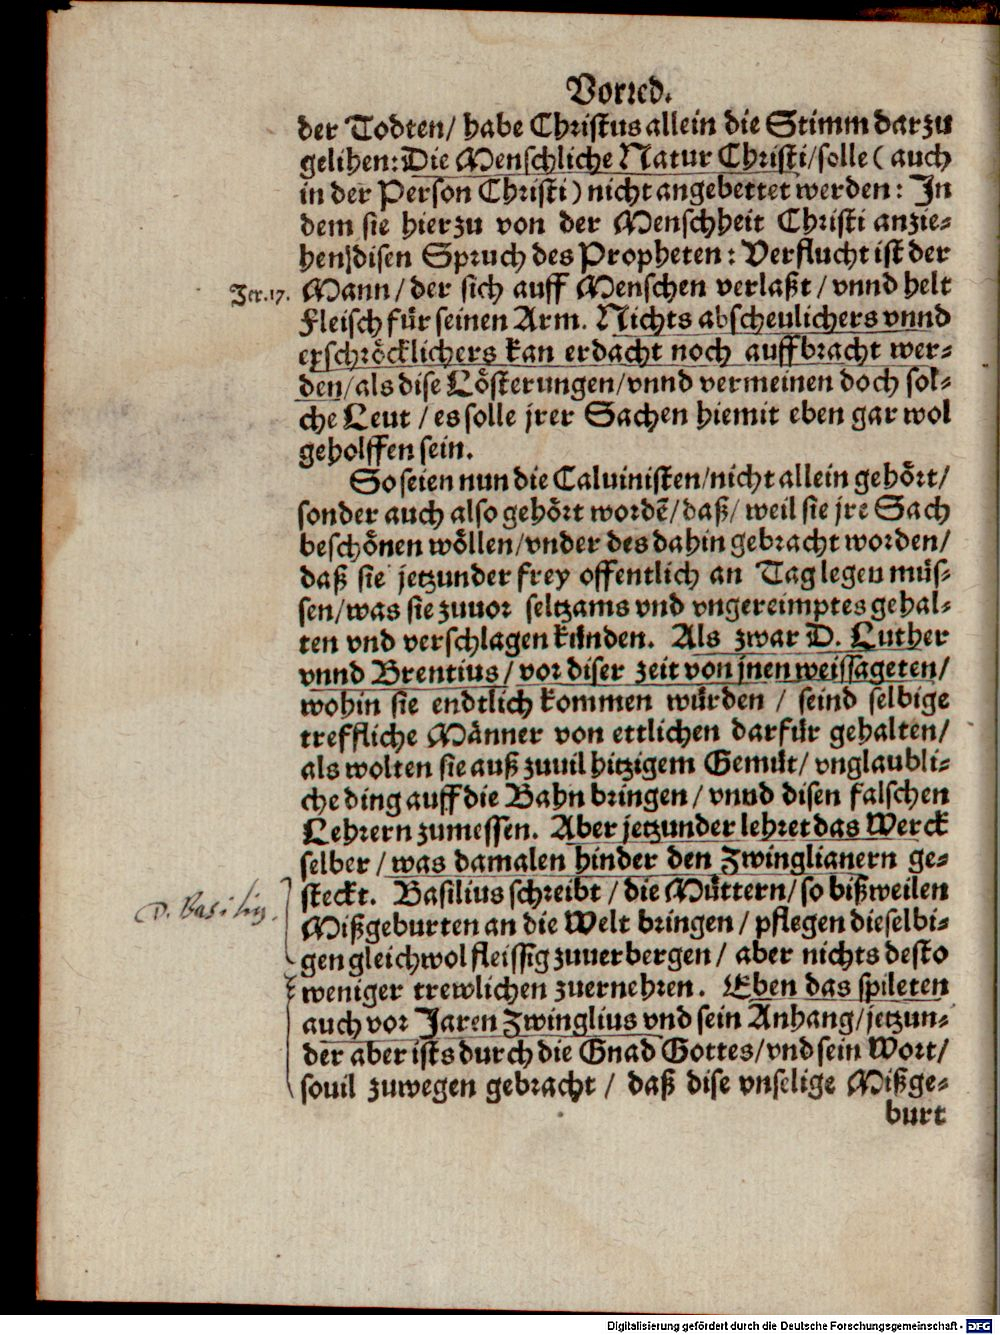 Vorred.
der Todten/ habe Christus allein die Stimm darzu
gelihen: Die Menschliche Natur Christi/ solle ( auch
in der Person Christi ) nicht angebettet werden: In
dem sie hierzu von der Menschheit Christi anzie-
hen disen Spruch des Propheten: Verflucht ist der
Jer. 17. Mann/ der sich auff Menschen verlaßt/ vnnd helt
Fleisch für seinen Arm. Nichts abscheulichers vnnd
erschröcklichers kan erdacht noch auffbracht wer-
den/ als dise Lösterungen/ vnnd vermeinen doch sol-
che Leut/ es solle jrer Sachen hiemit eben gar wol
geholffen sein.
So seien nun die Caluinisten/ nicht allein gehört/
sonder auch also gehört wordẽ/ daß/ weil sie jre Sach
beschönen wöllen/ vnder des dahin gebracht worden/
daß sie jetzunder frey offentlich an Tag legen müs-
sen/ was sie zuuor seltzams vnd vngereimptes gehal-
ten vnd verschlagen künden. Als zwar D. Luther
vnnd Brentius/ vor diser zeit von jnen weissageten/
wohin sie endtlich kommen würden/ seind selbige
treffliche Männer von ettlichen darfür gehalten/
als wolten sie auß zuuil hitzigem Gemüt/ vnglaubli-
che ding auff die Bahn bringen/ vnnd disen falschen
Lehrern zumessen. Aber jetzunder lehret das Werck
selber/ was damalen hinder den Zwinglianern ge-
steckt. Basilius schreibt/ die Müttern/ so bißweilen
D. Basiliy.
Mißgeburten an die Welt bringen/ pflegen dieselbi-
gen gleichwol fleissig zuuerbergen/ aber nichts desto
weniger trewlichen zuernehren. Eben das spileten
auch vor Jaren Zwinglius vnd sein Anhang/ jetzun-
der aber ists durch die Gnad Gottes/ vnd sein Wort/
souil zuwegen gebracht/ daß dise vnselige Mißge-
burt
Digitalisierung gefördert durch die Deutsche Forschungsgemeinschaft - DFG